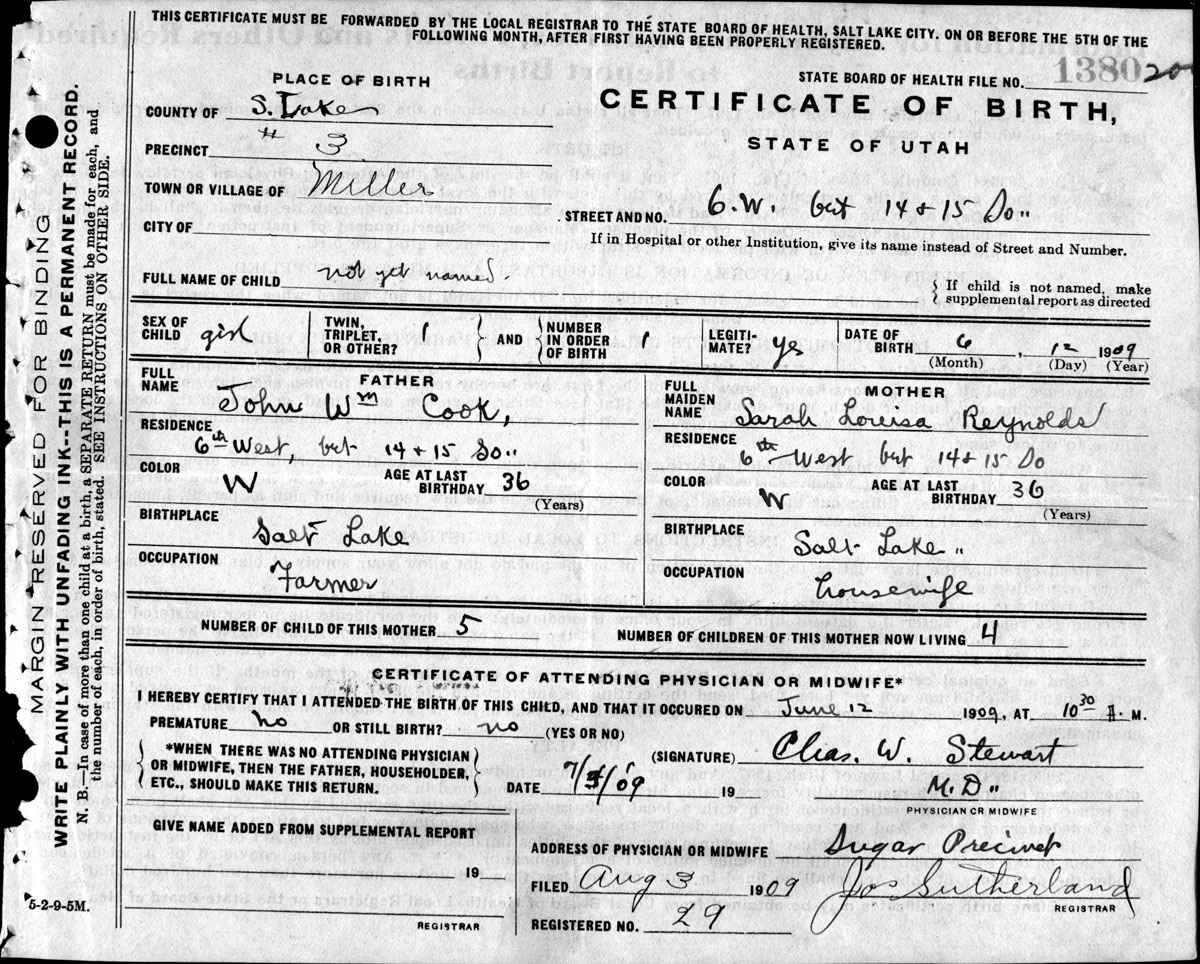 THIS CERTIFICATE MUST BE FORWARDED BY THE LOCAL REGISTRAR TO THE STATE BOARD OF HEALTH, SALT LAKE CITY. ON OR BEFORE THE 5TH OF THE
FOLLOWING MONTH, AFTER FIRST HAVING BEEN PROPERLY REGISTERED.
PLACE OF BIRTH
STATE BOARD OF HEALTH FILE NO. 1380 20
COUNTY OF S. Lake
CERTIFICATE OF BIRTH,
PRECINCT # 3
STATE OF UTAH
TOWN OR VILLAGE OF Miller
STREET AND NO. 6. W. bet 14 & 15 So"
CITY OF
If in Hospital or other Institution, give its name instead of Street and Number.
FULL NAME OF CHILD not yet named.
If child is not named, make
supplemental report as directed
SEX OF CHILD girl TWIN, TRIPLET, OR OTHER? 1 AND NUMBER IN ORDER OF BIRTH 1 LEGITI-MATE? yes DATE OF BIRTH 6, 12 1909
(Month) (Day) (Year)
FATHER
FULL NAME John Wm Cook,
RESIDENCE
6th West, bet 14 & 15 So"
COLOR W AGE AT LAST BIRTHDAY 36
(Years)
BIRTHPLACE
Salt Lake
OCCUPATION
Farmer
MOTHER
FULL MAIDEN NAME Sarah Louisa Reynolds
RESIDENCE
6th West bet 14 & 15 So
COLOR W AGE AT LAST BIRTHDAY 36
(Years)
BIRTHPLACE
Salt Lake "
OCCUPATION
housewife
NUMBER OF CHILD OF THIS MOTHER 5 NUMBER OF CHILDREN OF THIS MOTHER NOW LIVING 4
CERTIFICATE OF ATTENDING PHYSICIAN OR MIDWIFE*
I HEREBY CERTIFY THAT I ATTENDED THE BIRTH OF THIS CHILD, AND THAT IT OCCURED ON June 12 1909, AT 10 30 A. M.
PREMATURE no OR STILL BIRTH? no (YES OR NO)
*WHEN THERE WAS NO ATTENDING PHYSICIAN
OR MIDWIFE, THEN THE FATHER, HOUSEHOLDER,
ETC., SHOULD MAKE THIS RETURN.
(SIGNATURE) Chas. W. Stewart
DATE M.D"
PHYSICIAN OR MIDWIFE
GIVE NAME ADDED FROM SUPPLEMENTAL REPORT
19
REGISTRAR
ADDRESS OF PHYSICIAN OR MIDWIFE Sugar Precinct
FILED Aug 3 1909 Jos Sutherland
REGISTRAR
REGISTERED NO. 29
5-2-9-5M.
MARGIN RESERVED FOR BINDING
WRITE PLAINLY WITH UNFADING INK--THIS IS A PERMANENT RECORD.
N. B.—In case of more than one child at a birth, a SEPARATE RETURN must be made for each, and
the number of each, in order of birth, stated. SEE INSTRUCTIONS ON OTHER SIDE.